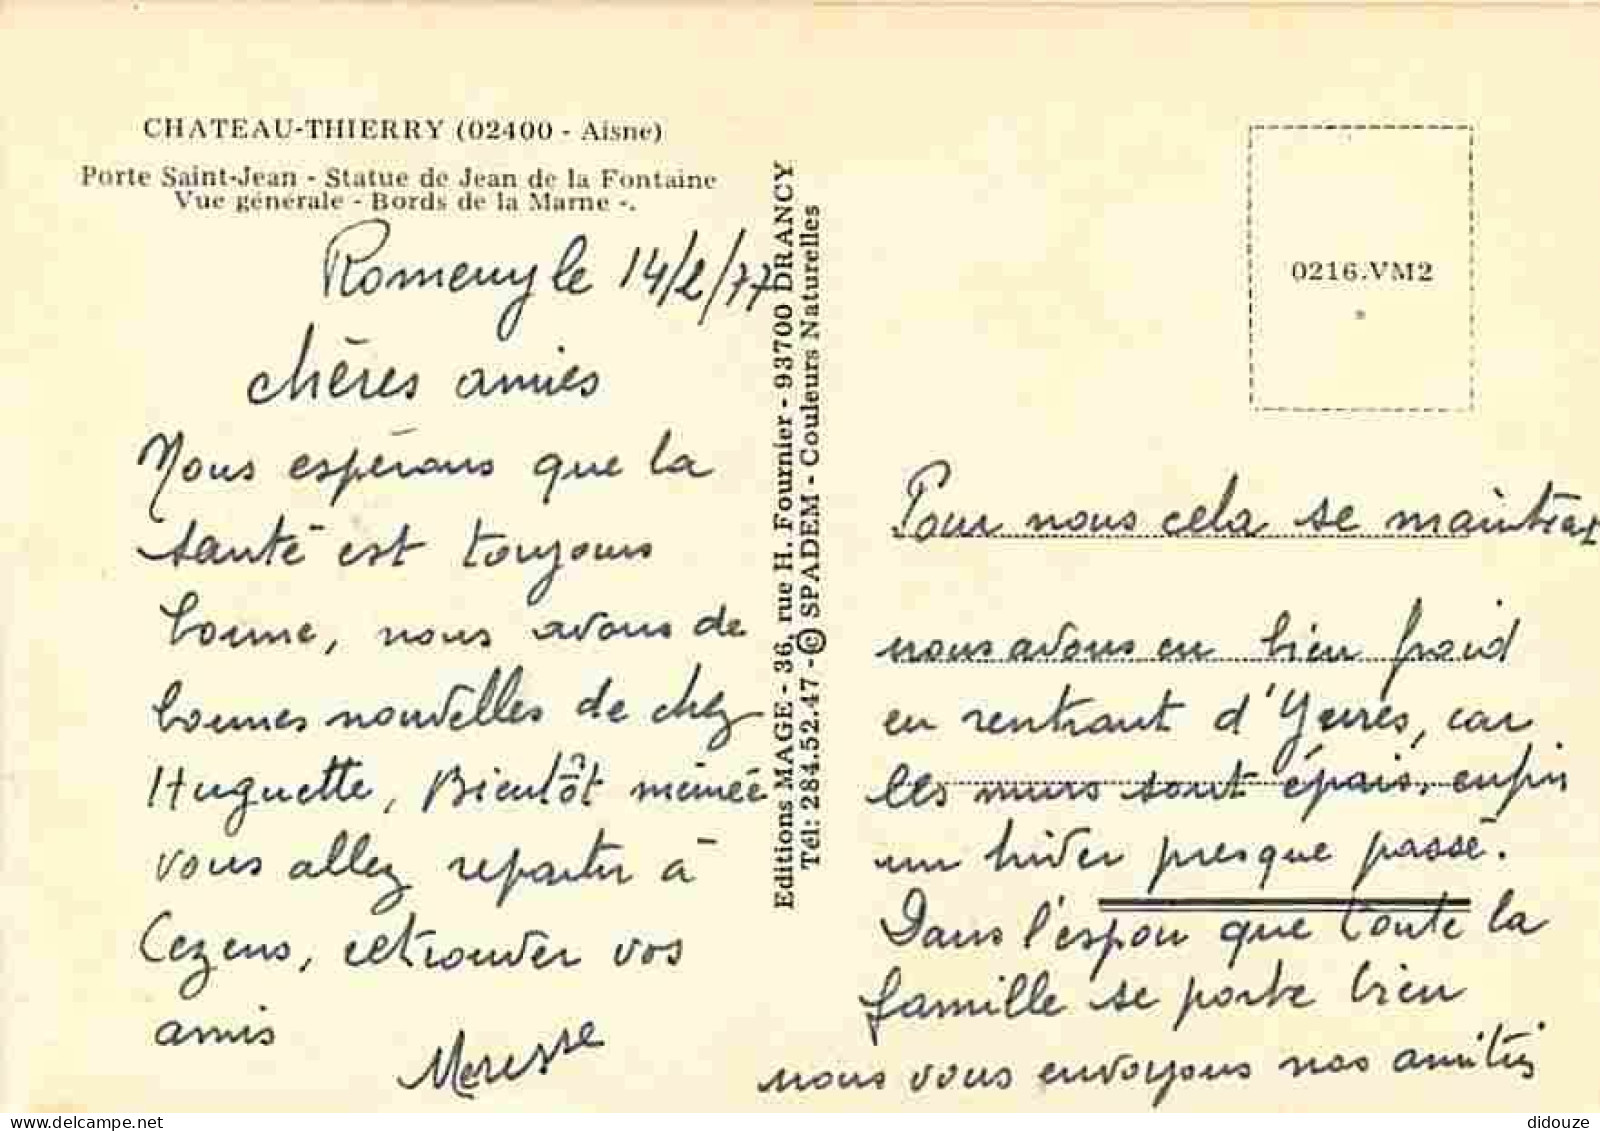 CHATEAU-THIERRY (02400 - Aisne)
Porte Saint-Jean - Statue de Jean de la Fontaine
Vue générale - Bords de la Marne -.
Romeny le 14/2/77
chères amies
Nous espérons que la
santé est toujours
bonne, nous avons de
bonnes nouvelles de chez
Huguette, Bientôt mémée
vous allez repartir à
Cezens, retrouver vos
amis
Meresse
Editions MAGE - 36, rue H. Fournier - 93700 DRANCY
Tél: 284.52.47 - © SPADEM - Couleurs Naturelles
0216.VM2
Pour nous cela se maintient
nous avons eu bien froid
en rentrant d'Yerres, car
les murs sont épais, enfin
un hiver presque passé.
Dans l'espoir que toute la
famille se porte bien
nous vous envoyons nos amitiés
delcampe.net
didouze